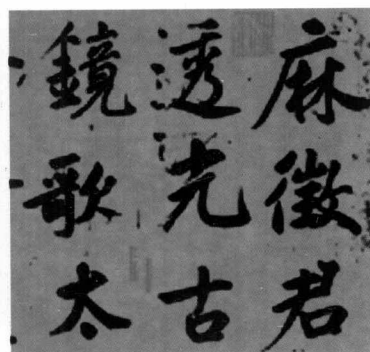 麻徵君
透光古
鏡歌太